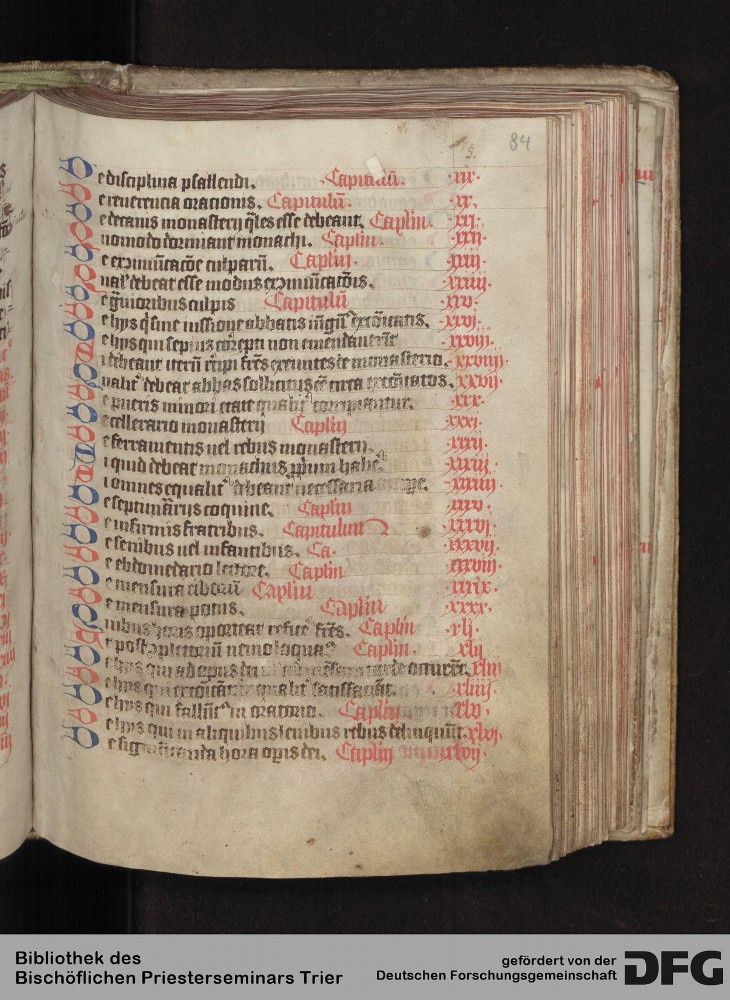 84
5.
De disciplina psallendi. Capitulū. xix.
De reuerencia oracionis. Capitulū. xx.
De decanis monasterij q̄les esse debeant. Caplm. xxj.
Quomodo dormiant monachi. Caplm. xxij.
De excōmunicacōe culparū. Caplm. xxiij.
Qualʼ debeat esse modus excōmunicacōis. xxiiij.
De gͣuioribus culpis Capitulū xxv.
De hijs qͥ sine iussione abbatis iūgūt se excōicatis. xxvj.
De hijs qui sepius correpti non emendauerīt xxviij.
Si debeant iterū recipi fr̄es exeuntes de monasterio. xxviiij.
Qualitʼ debeat abbas sollicitus eē circa excōicatos. xxvij.
De pueris minori etate qualitʼ corripiantur. xxx.
De cellerario monasterij Caplm xxxj.
De ferramentis uel rebus monasterij. xxxij.
Si quid debeat monachus ꝓprium habēʼ xxxiij.
Si omnes equalitʼ debeant necessaria accipe. xxxiiij.
De septimārijs coquine. Caplm xxxv.
De infirmis fratribus. Capitulum xxxvj.
De senibus uel infantibus. Ca. xxxvij.
De ebdomedario lectore. Caplm xxxviij
De mensura ciborū Caplm xxxix.
De mensura potus. Caplm xxxx.
Quibus horis oporteat reficeʼ fr̄es. Caplm xlj.
Ve post ꝯpletoriū nemo loquaʳ Caplm. xlij
De hijs qui ad opus dei uel ad mēsam tarde occurrūt. xliij
De hijs qui excōicātur qualitʼ satisfaciāt. xliiij.
De hijs qui fallūtʳ in oratorio. Caplm xlv.
De hijs qui in aliquibus leuibus rebus delinquūt. xlvj.
De significanda hora oꝑis dei. Caplm xlvij.
Bibliothek des
Bischöflichen Priesterseminars Trier
gefördert von der
Deutschen Forschungsgemeinschaft
DFG